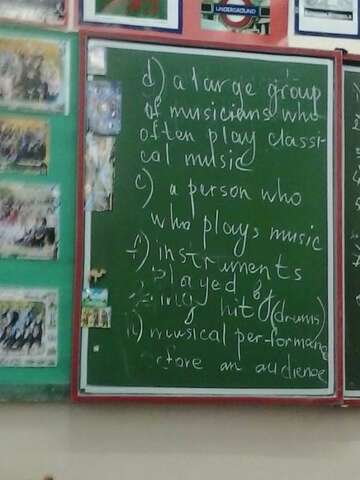 UNDERGROUND
d) a large group
of musicians who
often play classi-
cal music
c) a person who
who plays music
instruments
played by
hit (drums)
musical performanc
an audience